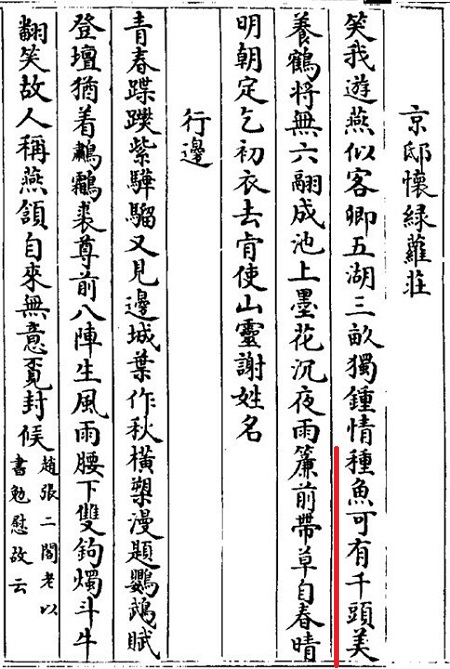 京邸懷綠蘿莊
笑我遊燕似客卿五湖三畝獨鍾情種魚可有千頭美
養鶴將無六翮成池上墨花沉夜雨簾前帶草自春晴
明朝定乞初衣去肯使山靈謝姓名
行邊
青春蹀躞紫驊騮又見邊城葉作秋橫槊漫題鸚鵡賦
登壇猶着鷫鸘裘尊前八陣生風雨腰下雙鉤燭斗牛
翻笑故人稱燕頷自來無意覔封侯
趙張二閣老以
書勉慰故云